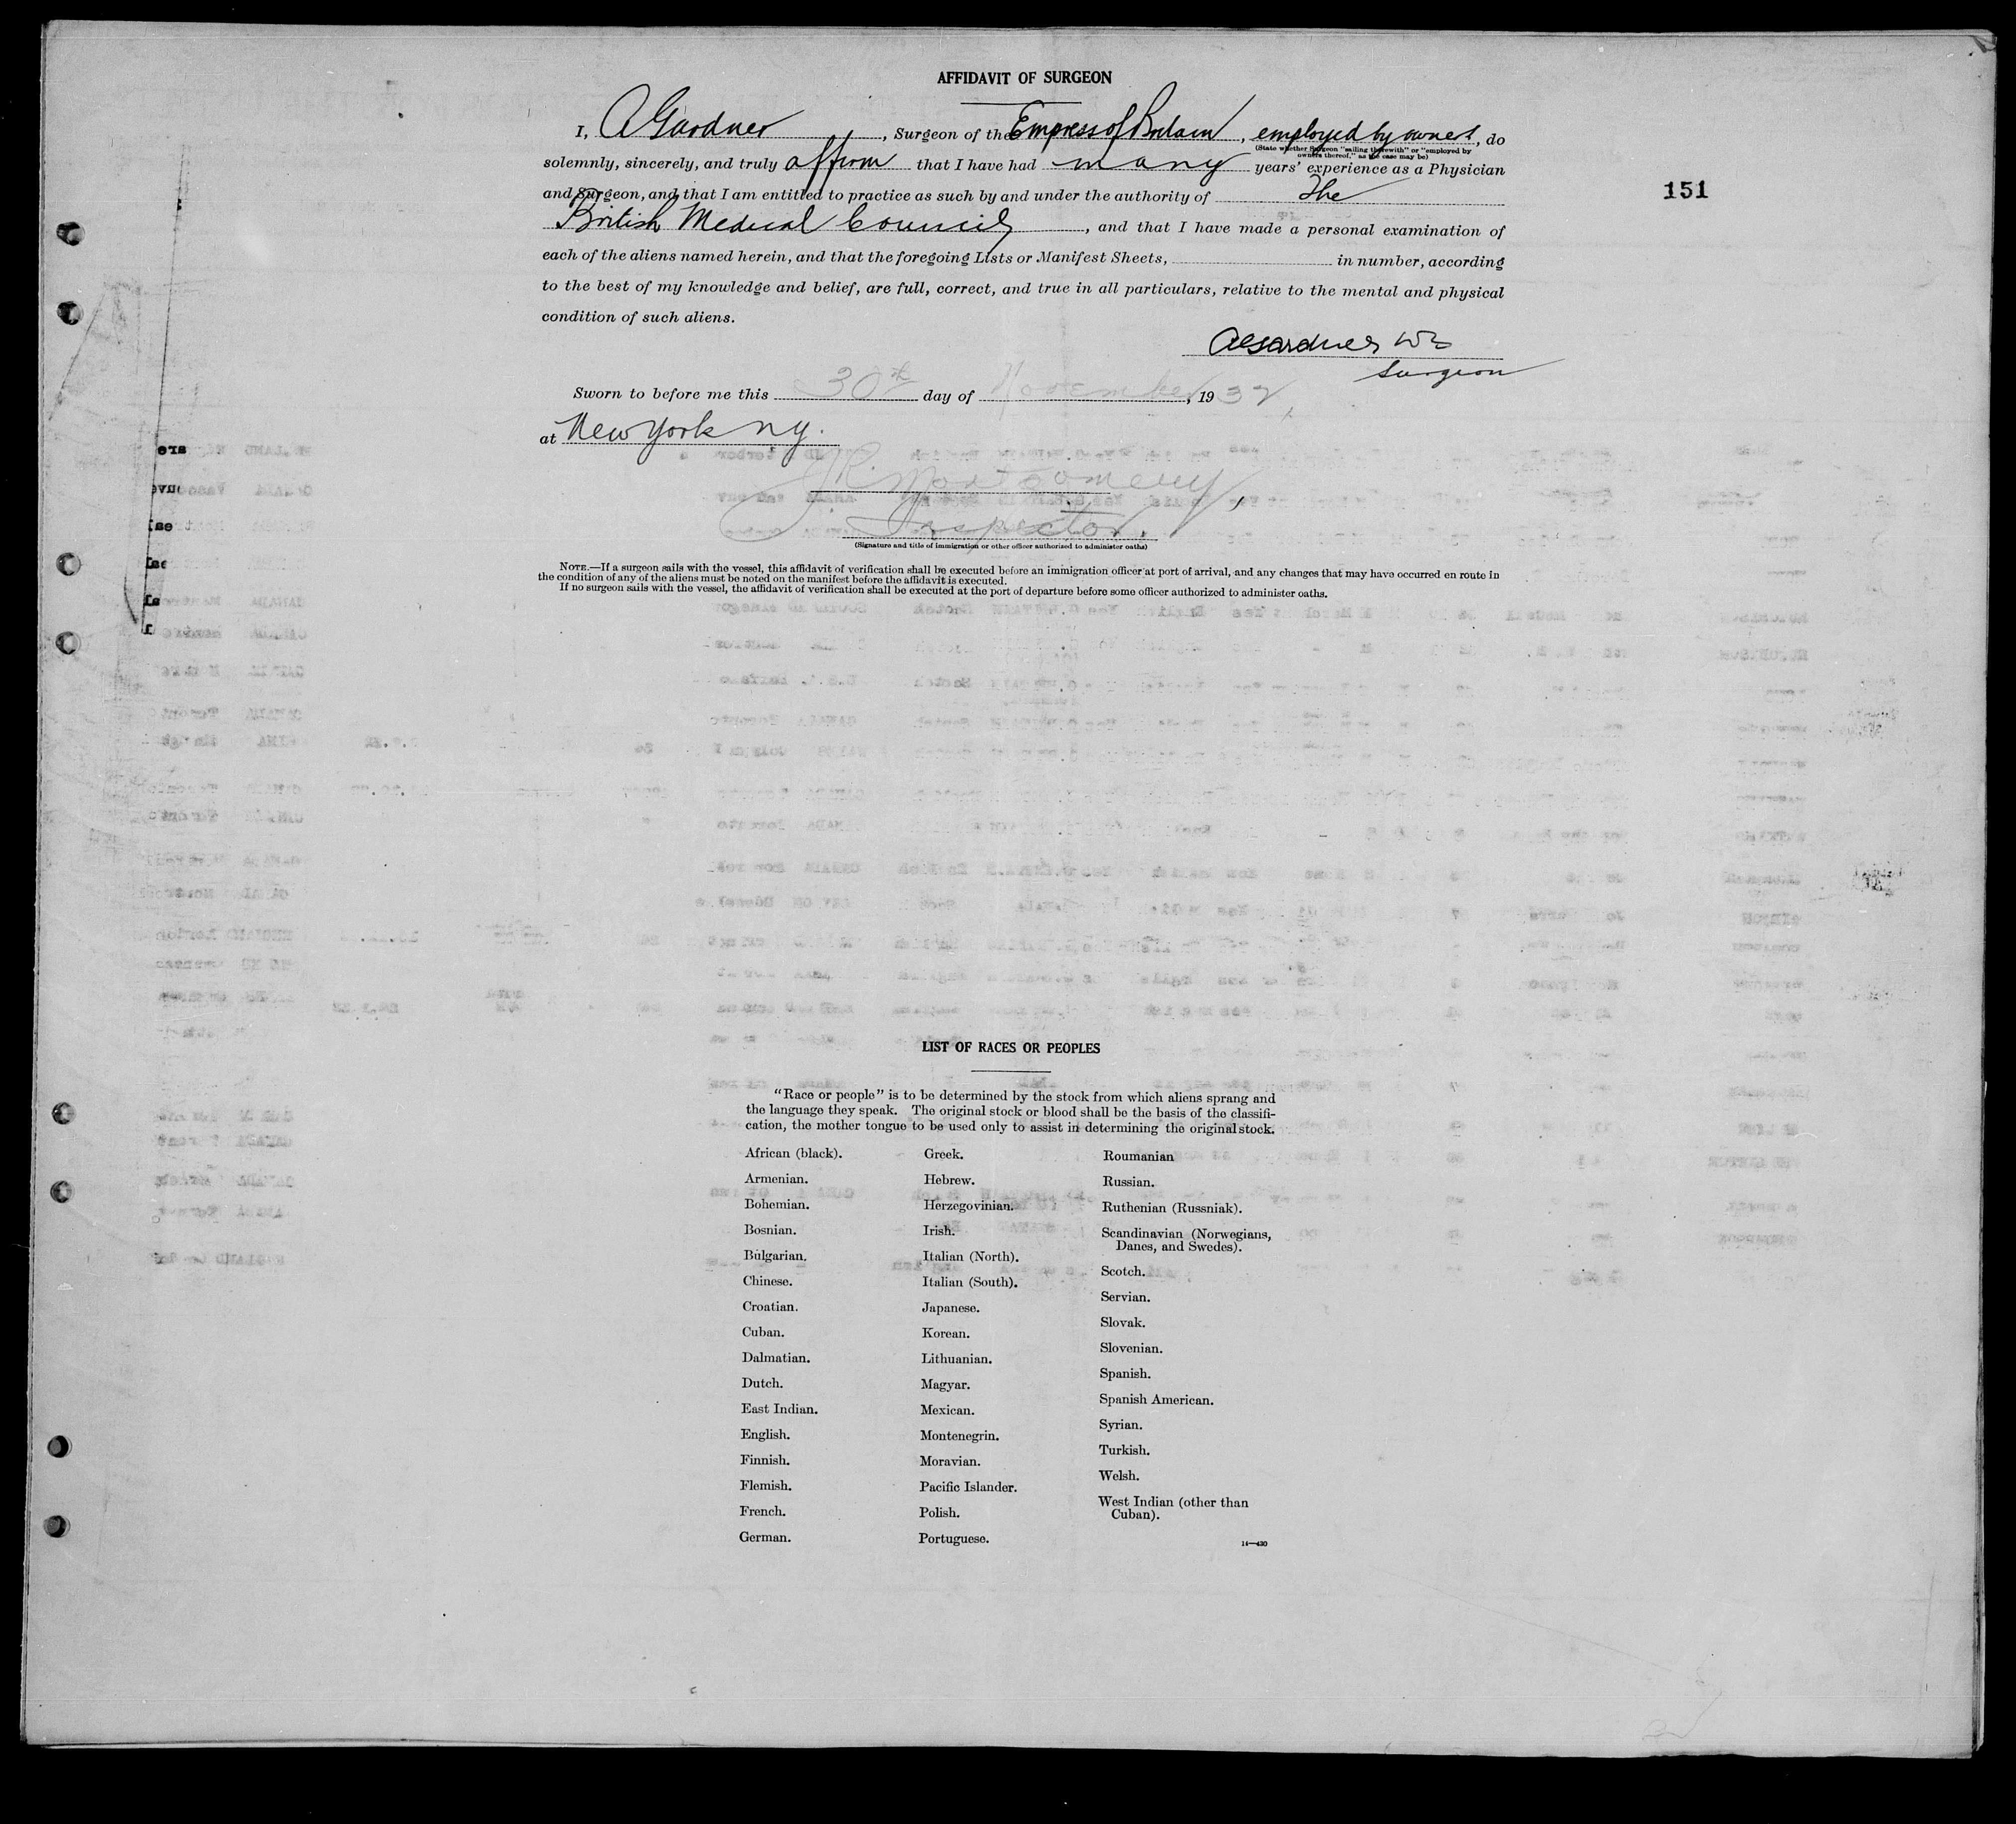 AFFIDAVIT OF SURGEON
I, A Gardner, Surgeon of the Empress of Britain, employed by owners, do
(State whether Surgeon "sailing therewith" or "employed by
owners thereof," as the case may be)
solemnly, sincerely, and truly affirm that I have had many years' experience as a Physician
and Surgeon, and that I am entitled to practice as such by and under the authority of The
151
British Medical Council, and that I have made a personal examination of
each of the aliens named herein, and that the foregoing Lists or Manifest Sheets, in number, according
to the best of my knowledge and belief, are full, correct, and true in all particulars, relative to the mental and physical
condition of such aliens.
A Gardner
Surgeon
Sworn to before me this 30th day of November, 1932,
at New York NY.
J.R. Montgomery,
Inspector.
(Signature and title of immigration or other officer authorized to administer oaths)
NOTE.—If a surgeon sails with the vessel, this affidavit of verification shall be executed before an immigration officer at port of arrival, and any changes that may have occurred en route in
the condition of any of the aliens must be noted on the manifest before the affidavit is executed.
If no surgeon sails with the vessel, the affidavit of verification shall be executed at the port of departure before some officer authorized to administer oaths.
LIST OF RACES OR PEOPLES
"Race or people" is to be determined by the stock from which aliens sprang and
the language they speak. The original stock or blood shall be the basis of the classifi-
cation, the mother tongue to be used only to assist in determining the original stock.
African (black).
Armenian.
Bohemian.
Bosnian.
Bulgarian.
Chinese.
Croatian.
Cuban.
Dalmatian.
Dutch.
East Indian.
English.
Finnish.
Flemish.
French.
German.
Greek.
Hebrew.
Herzegovinian.
Irish.
Italian (North).
Italian (South).
Japanese.
Korean.
Lithuanian.
Magyar.
Mexican.
Montenegrin.
Moravian.
Pacific Islander.
Polish.
Portuguese.
Roumanian
Russian.
Ruthenian (Russniak).
Scandinavian (Norwegians,
Danes, and Swedes).
Scotch.
Servian.
Slovak.
Slovenian.
Spanish.
Spanish American.
Syrian.
Turkish.
Welsh.
West Indian (other than
Cuban).
14—430